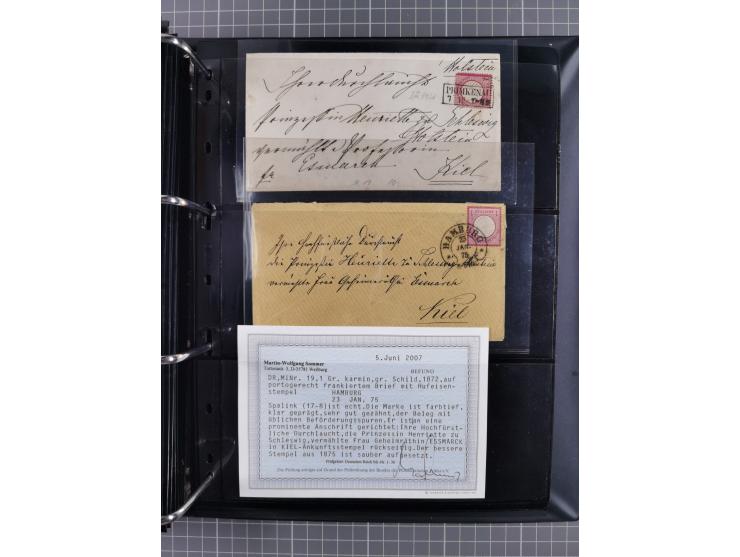 Holstein
Ihre Durchlaucht
PRIMKENAU
Prinzessin Henriette zu Schleswig
Holstein
vermählte Professorin
Esmarch
Kiel
HAMBURG
23
JAN.
75
Ihre Hochfürstliche Durchlaucht
die Prinzessin Henriette zu Schleswig Holstein
vermählte Frau Geheimräthin Esmarch
Kiel
Martin-Wolfgang Sommer
5.Juni 2007
BEFUND
DR,MiNr. 19,1 Gr. karmin,gr. Schild,1872,auf
portogerecht frankiertem Brief mit Hufeisen-
stempel HAMBURG
23 JAN. 75
Spalink (17-8)ist echt.Die Marke ist farbtief,
klar geprägt,sehr gut gezähnt,der Beleg mit
üblichen Beförderungsspuren.Er ist an eine
prominente Anschrift gerichtet:Ihre Hochfürst-
liche Durchlaucht,die Prinzessin Henriette zu
Schleswig,vermählte Frau Geheimräthin/ESSMARCK
in KIEL-Ankunftsstempel rückseitig.Der bessere
Stempel aus 1875 ist sauber aufgesetzt.